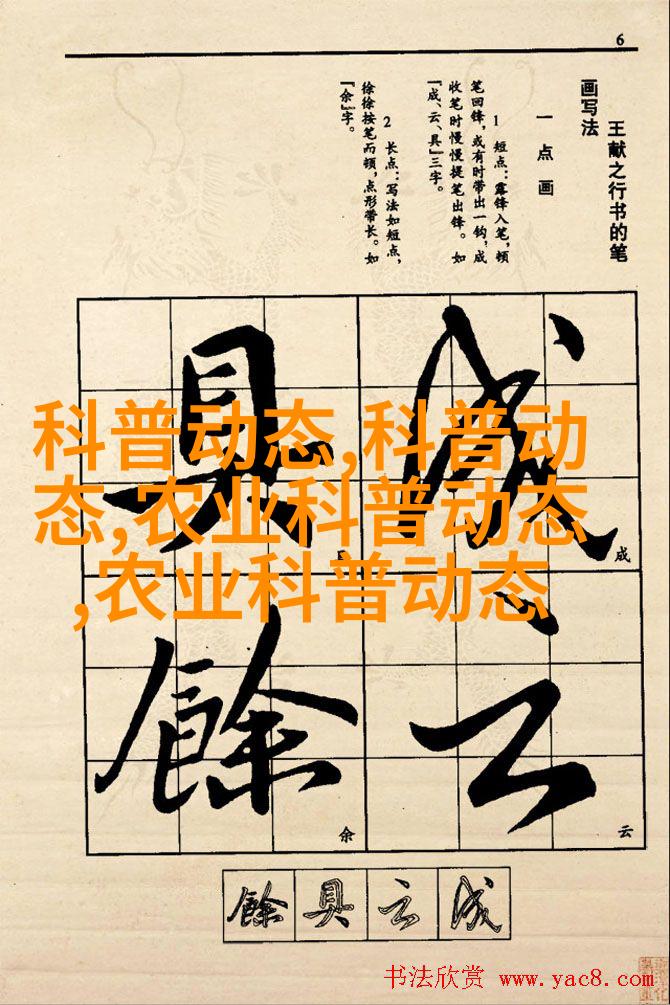 6
王献之行书的笔
画写法
一点画
1 短点：露锋入笔，顿
笔回锋，或有时带出一钩，成
收笔时慢慢提笔出锋。如
『成、云、具』三字。
2 长点：写法如短点，
徐徐按笔而顿，点形带长。如
『余』字。
成
云
具
餘
成
云
余
科普动态,科普动
态,农业科普动态
,农业科普动态
餘具云成
书法欣赏 www.yac8.com